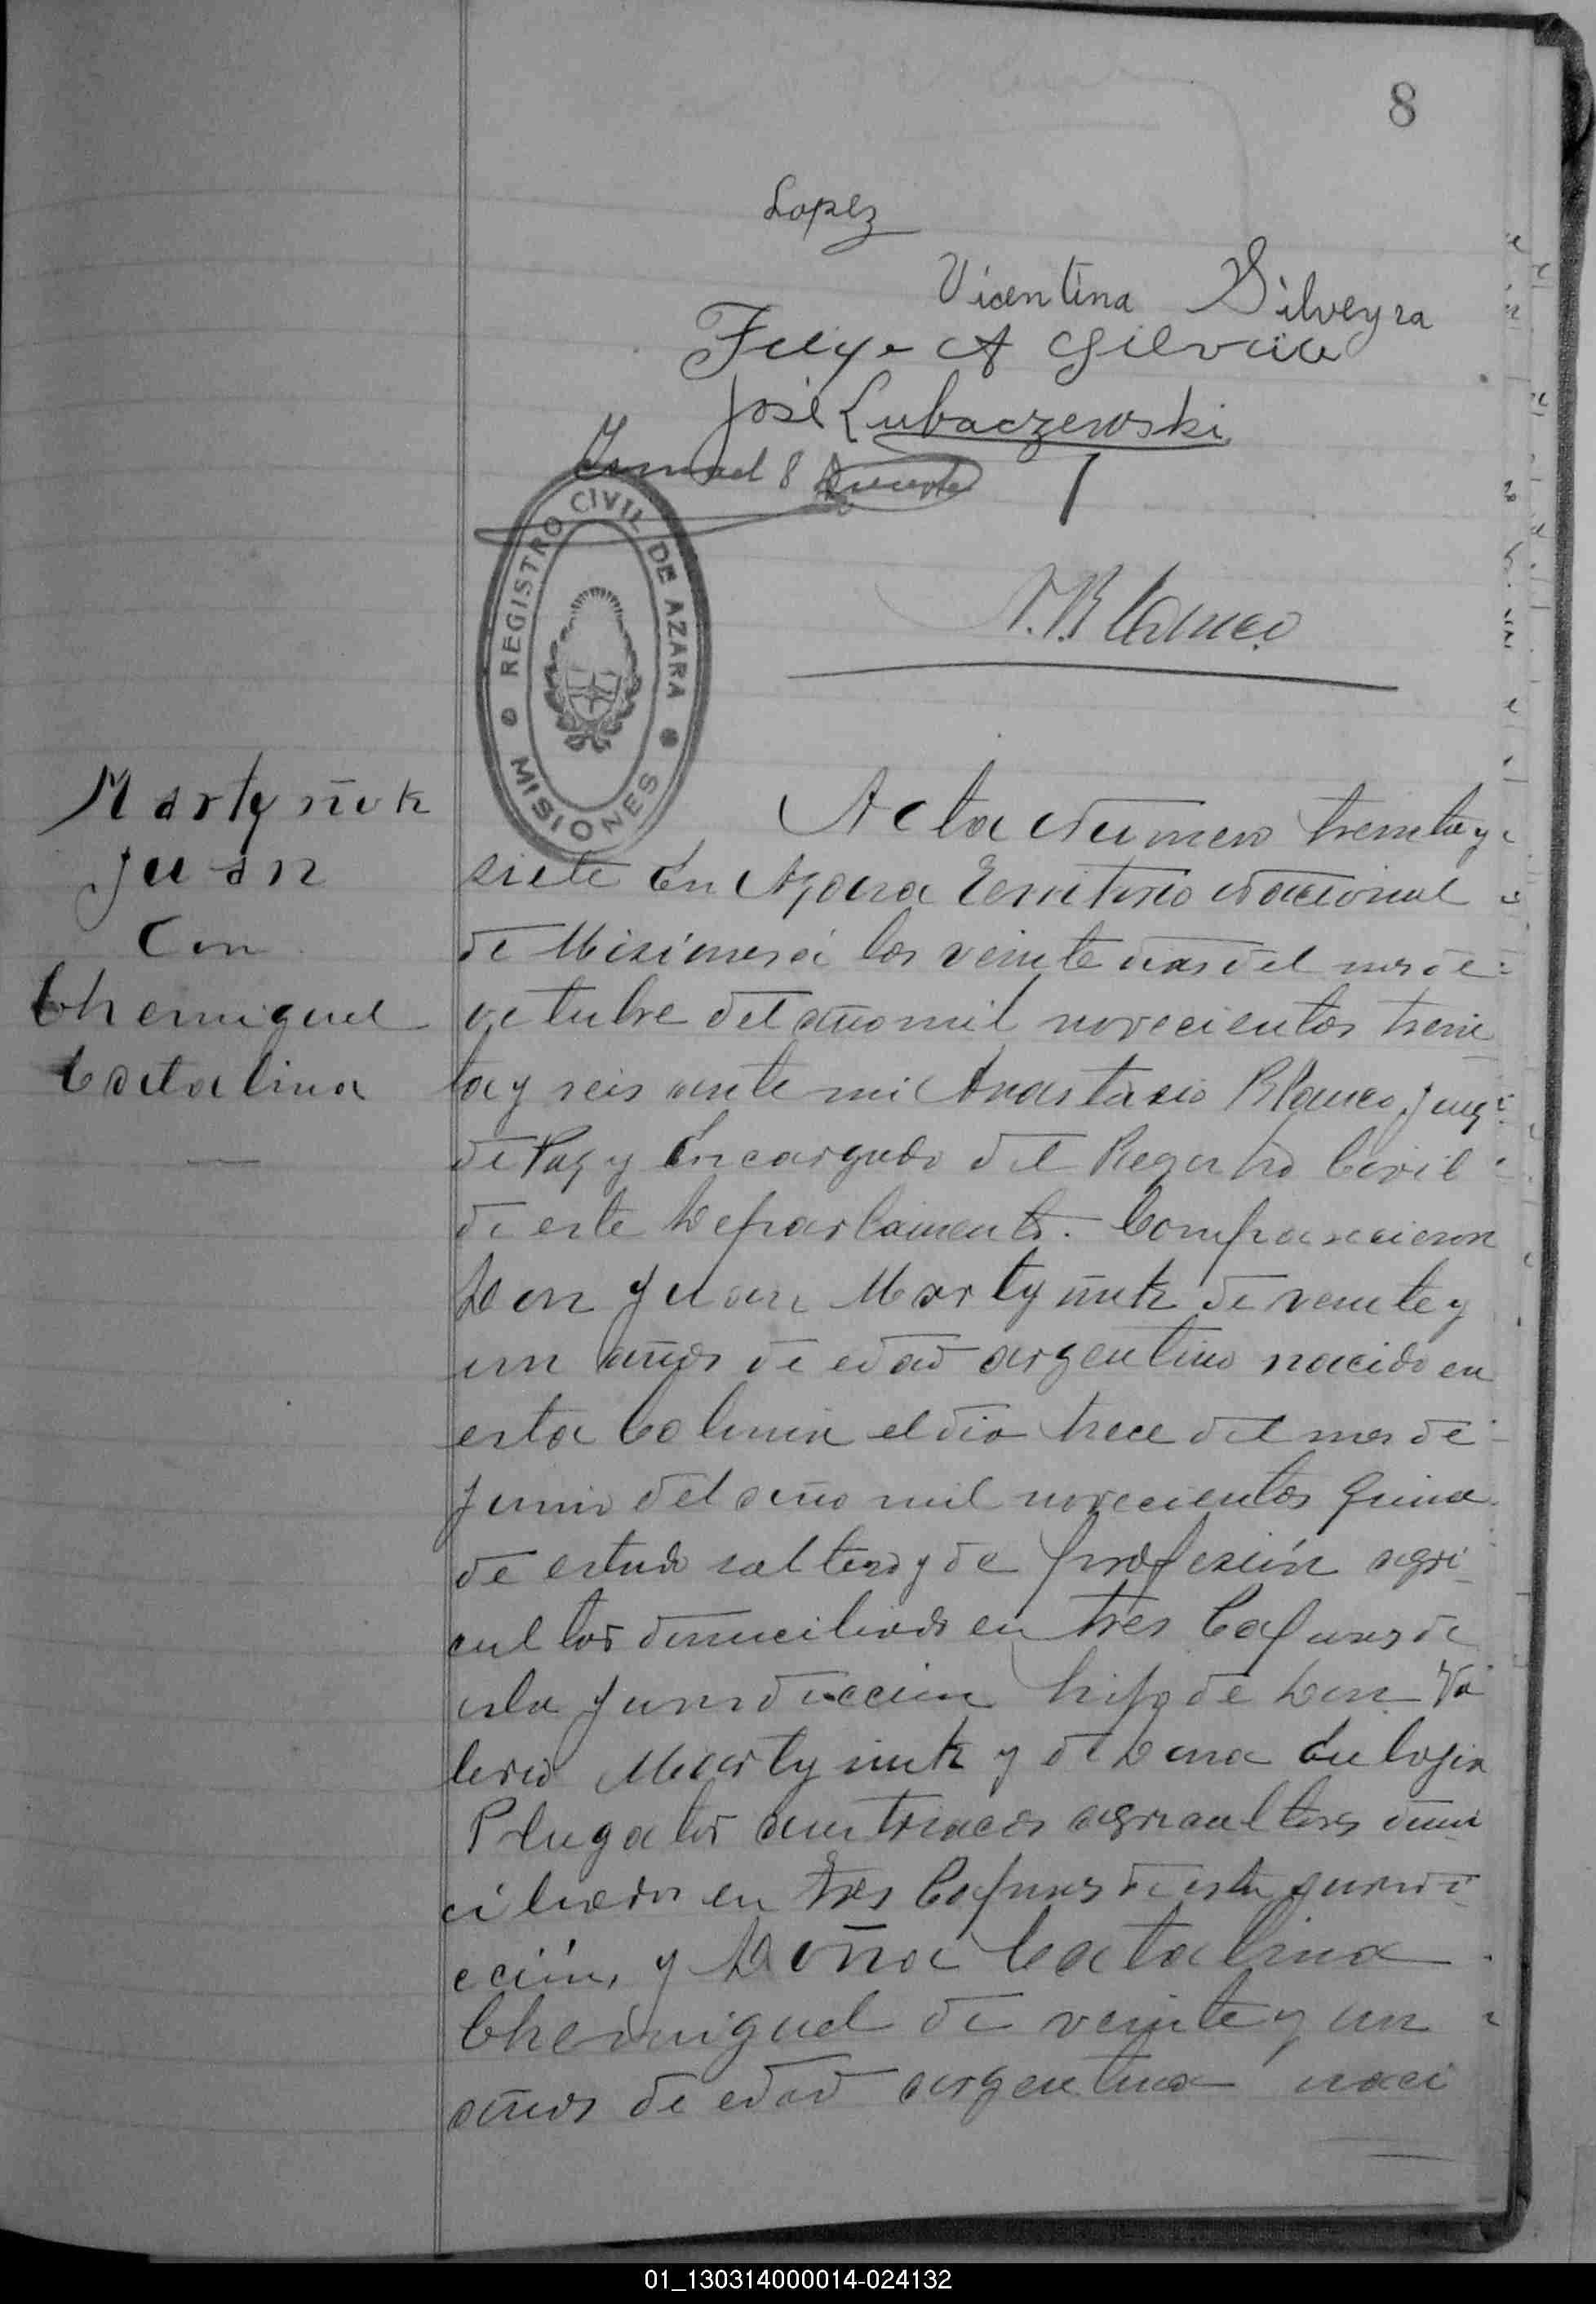 8
Lopez
Vicentina Silveyra
José Lubaczewski
A. Blanco
REGISTRO CIVIL DE AZARA
MISIONES
Martyñuk
Juan
Con
Chemiguel
Catalina
Acta número treinta y
siete En Azara Territorio Nacional
de Misiones á los veinte dias del mes de
octubre del año mil novecientos trein
ta y seis ante mi Anastasio Blanco, Juez
de Paz y Encargado del Registro Civil
de este Departamento. Comparecieron
Don Juan Martyñuk de veinte y
un años de edad argentino nacido en
esta Colonia el dia trece del mes de
Junio del año mil novecientos quince
de estado soltero y de profesión agri
cultor domiciliado en Tres Capones de
esta Jurisdiccion hijo de Don Va
lerio Martyñuk y de Dona Eulogia
austriacos agricultores domi
ciliados en Tres Capones de esta jurisdi
cción, y Doña Catalina
Chemiguel de veinte y un
años de edad argentina naci
01_130314000014-024132